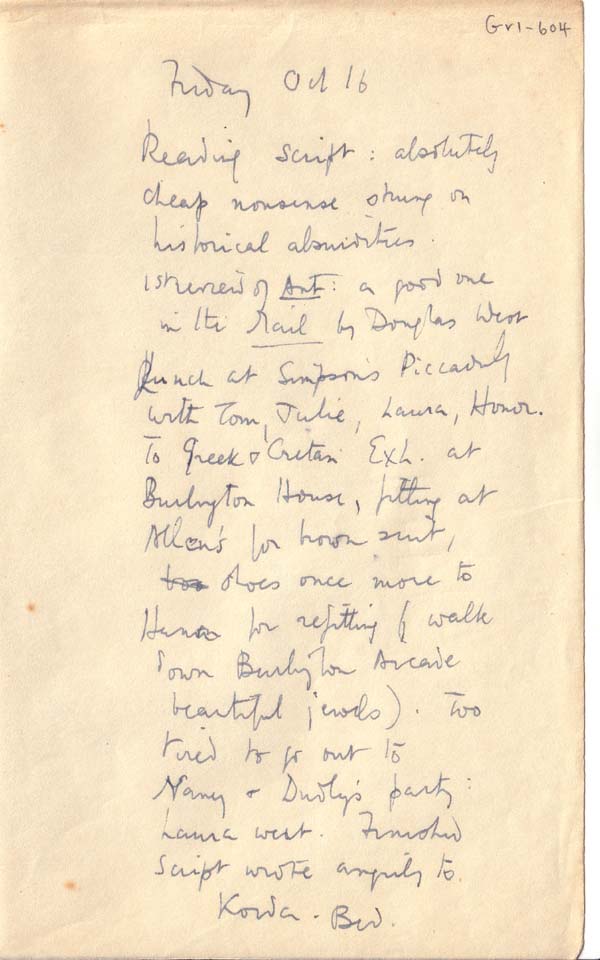 Gr1-604
Friday Oct 16
Reading script: absolutely
cheap nonsense strung on
historical absurdities.
1st review of Ant: a good one
in the Mail by Douglas West
Lunch at Simpson's Piccadilly
with Tom, Julie, Laura, Honor.
To Greek & Cretan Exh. at
Burlington House, fitting at
Allen's for brown suit,
shoes once more to
for refitting (walk
down Burlington Arcade
beautiful jewels). Too
tired to go out to
Nancy & Dudly's party:
Laura went. Finished
script wrote angrily to
Korda. Bed.